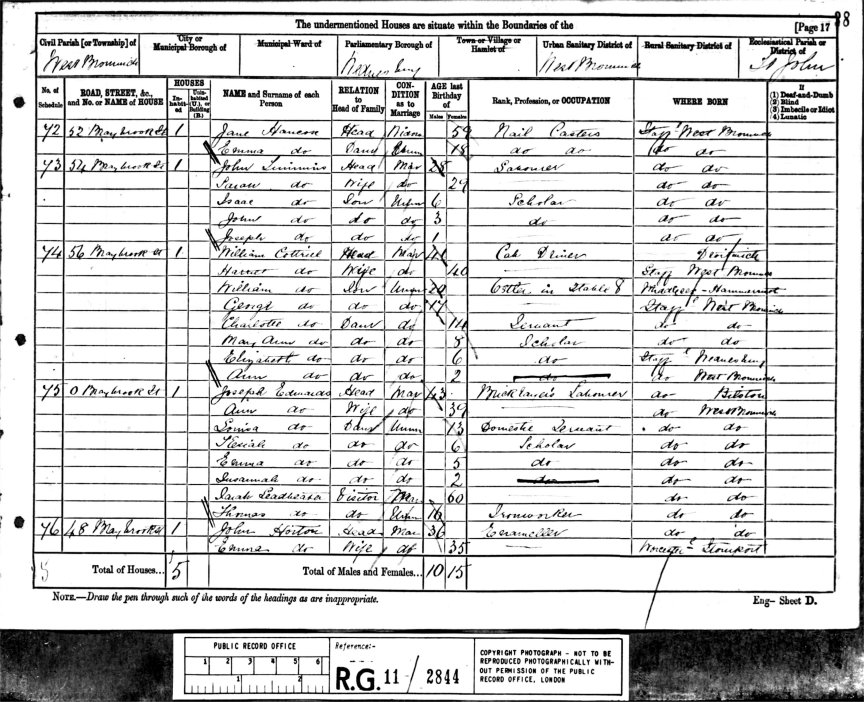 88
The undermentioned Houses are situate within the Boundaries of the [Page 17
Civil Parish [or Township] of City or Municipal Borough of Municipal Ward of Parliamentary Borough of Town or Village or Hamlet of Urban Sanitary District of Rural Sanitary District of Ecclesiastical Parish or District of
West Bromwich Wednesbury West Bromwich St John
No. of Schedule ROAD, STREET, &c., and No. or NAME of HOUSE HOUSES In-habit-ed Unin-habited (U.), or Building (B.) NAME and Surname of each Person RELATION to Head of Family CON-DITION as to Marriage AGE last Birthday of Males Females Rank, Profession, or OCCUPATION WHERE BORN If (1) Deaf-and-Dumb (2) Blind (3) Imbecile or Idiot (4) Lunatic
72 52 Maybrook St 1 Jane Head Widow 59 Nail Casters Staffs West Bromwich
Emma do Daur Unm 18 do do do do
73 54 Maybrook St 1 John Timmins Head Mar 28 Labourer do do
Sarah do Wife do 29 do do
Isaac do Son Unm 6 Scholar do do
John do do do 3 do do do
Joseph do do do 1 do do
74 56 Maybrook St 1 William Cottrill Head Mar 41 Cab Driver
Harriet do Wife do 40 Staff West Bromwich
William do Son Unm 20 Ostler in Stable
George do do do 17 Staff West Bromwich
Charlotte do Daur do 14 Servant do do
Mary Ann do do do 8 Scholar do do
Elizabeth do do do 6 do Staff Wednesbury
Ann do do do 2 do do West Bromwich
75 0 Maybrook St 1 Joseph Edwards Head Mar 43 Labourer do Bilston
Ann do Wife do 39 do West Bromwich
Louisa do Daur Unm 13 Domestic Servant do do
Kesiah do do do 6 Scholar do do
Emma do do do 5 do do do
Susannah do do do 2 do do do
Sarah Visitor 60 do do
Thomas do do Unm 16 Ironworker do do
76 48 Maybrook St 1 John Horton Head Mar 36 do do
Emma do Wife do 35
5 Total of Houses... 5 Total of Males and Females... 10 15
NOTE.—Draw the pen through such of the words of the headings as are inappropriate. Eng- Sheet D.
PUBLIC RECORD OFFICE
1 2 3 4 5 6
1 2
Reference:-
R.G. 11 / 2844
COPYRIGHT PHOTOGRAPH - NOT TO BE REPRODUCED PHOTOGRAPHICALLY WITH-OUT PERMISSION OF THE PUBLIC RECORD OFFICE, LONDON